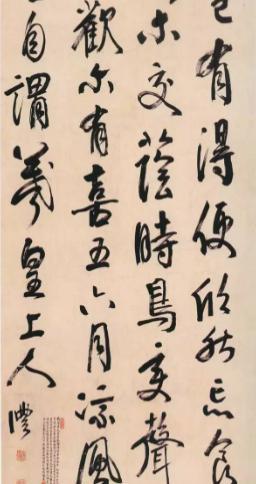 有得便欣然忘食
木交蔭時鳥變聲
歡尔有喜五六月涼風
自謂羲皇上人